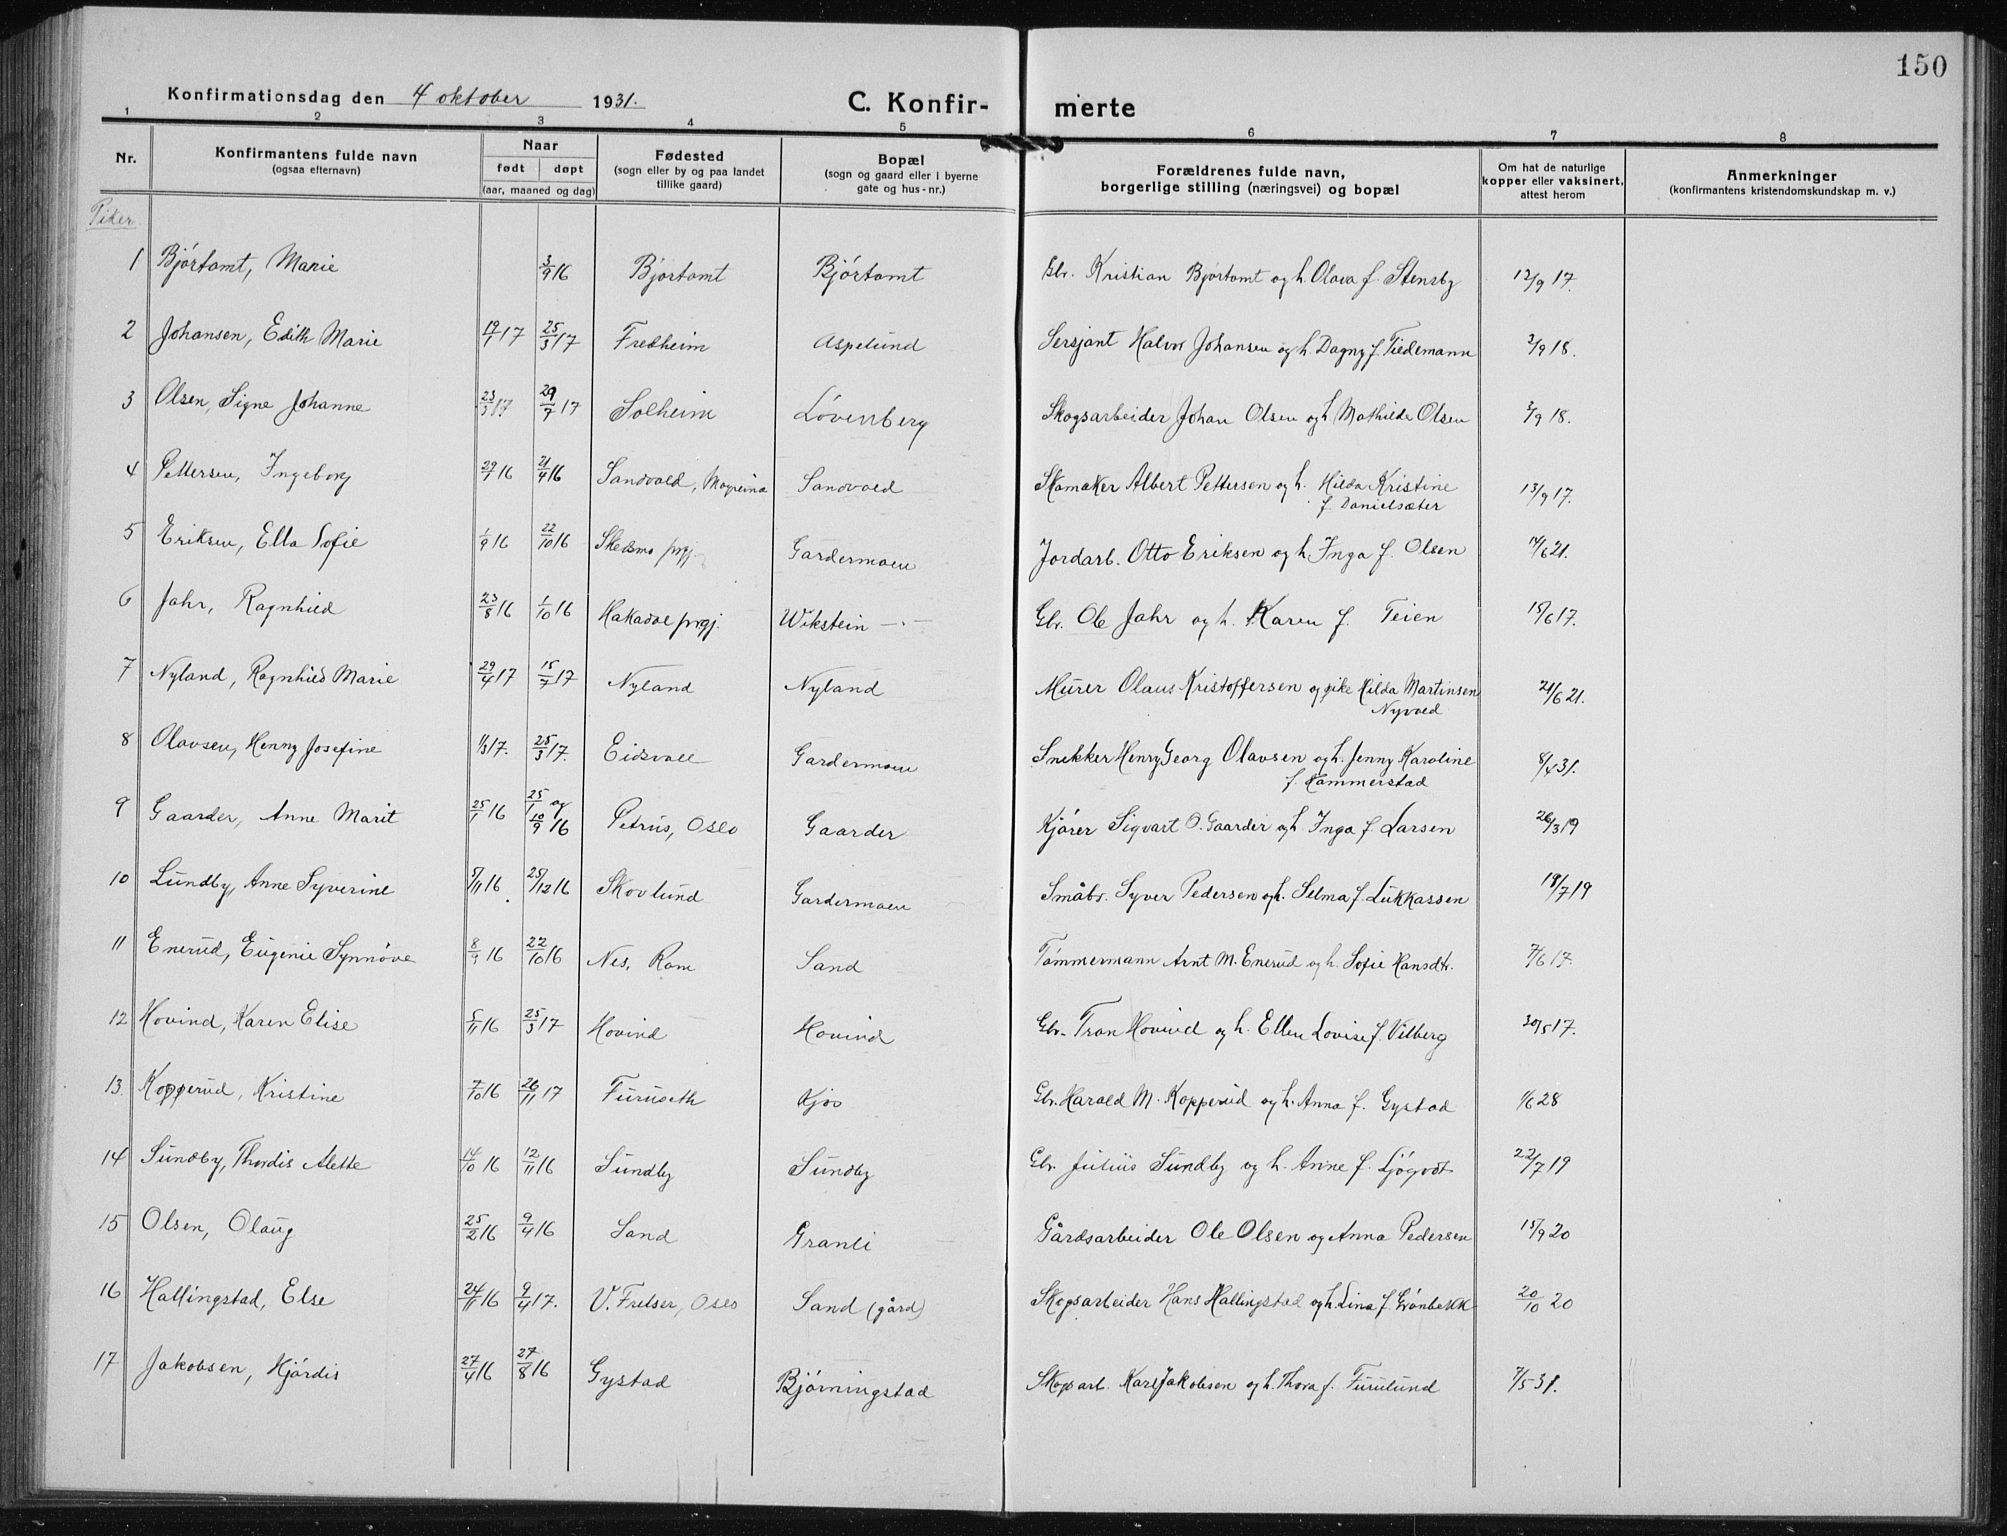 150
Konfirmationsdag den 4 oktober 1931.
C. Konfir- merte
1 2 3 4 5 6 7 8
Nr. Konfirmantens fulde navn (ogsaa efternavn) Naar født døpt (aar, maaned og dag) Fødested (sogn eller by og paa landet tillike gaard) Bopæl (sogn og gaard eller i byerne gate og hus-nr.) Forældrenes fulde navn, borgerlige stilling (næringsvei) og bopæl Om hat de naturlige kopper eller vaksinert, attest herom Anmerkninger (konfirmantens kristendomskundskap m. v.)
Piker
1 Bjørtomt, Marie 3/9 16 Bjørtomt Bjørtomt Gbr. Kristian Bjørtomt og h. Olava f. Stensby 12/9 17.
2 Johansen, Edith Marie 19/1 17 25/3 17 Fredheim Aspelund Sersjant Halvor Johansen og h. Dagny f. Tiedemann 3/9 18.
3 Olsen, Signe Johanne 23/3 17 29/7 17 Solheim Løvenberg Skogsarbeider Johan Olsen og h. Mathilde Olsen 3/9 18.
4 Pettersen, Ingeborg 29/1 16 21/4 16 Sandvold, Mogreina Sandvold Skomaker Albert Pettersen og h. Hilda Kristine
f. Danielsæter 13/9 17.
5 Eriksen, Ella Sofie 1/9 16 22/10 16 Skedsmo prgj. Gardermoen Jordarb. Otto Eriksen og h. Inga f. Olsen 14/6 21.
6 Jahr, Ragnhild 23/8 16 1/10 16 Nakadal prgj. Wikstein -"- Gbr. Ole Jahr og h. Karen f. Teien 15/6 17.
7 Nyland, Ragnhild Marie 29/4 17 15/7 17 Nyland Nyland Murer Olaus Kristoffersen og pike Hilda Martinsen
Nyvold 21/6 21.
8 Olavsen, Henny Josefine 1/3 17. 25/3 17. Eidsvoll Gardermoen Snekker Henry Georg Olavsen og h. Jenny Karoline
f. Hammerstad 8/4 31.
9 Gaarder, Anne Marit 25/1 16 25/1 og 10/9 16 Petrus, Oslo Gaarder Kjører Sigvart O. Gaarder og h. Inga f. Larsen 26/3 19
10 Lundby, Anne Syverine 5/11 16. 25/12 16 Skovlund Gardermoen Småbr. Syver Pedersen og h. Selma f. Lukkassen 18/7 19
11 Enerud, Eugenie Synnøve 8/9 16 22/10 16 Nes, Rom Sand Tømmermann Arnt M. Enerud og h. Sofie Hansdtr. 7/6 17.
12 Hovind, Karen Elise 5/11 16 25/3 17 Hovind Hovind Gbr. Tran Hovind og h. Ellen Lovise f. Vilberg 30/5 17.
13. Kopperud, Kristine 7/10 16 26/11 17 Furuseth Kjos Gbr. Harald M. Kopperud og h. Anna f. Gystad 1/6 28
14 Sundby, Thordis Alette 14/10 16 12/11 16 Sundby Sundby Gbr. Julius Sundby og h. Anne f. Ljøgodt 22/7 19
15 Olsen, Olaug 25/2 16 9/4 16 Sand Granli Gårdsarbeider Ole Olsen og Anna Pedersen 15/9 20
16 Hallingstad, Else 24/11 16 9/4 17. V. Frelser, Oslo Sand (gård) Skogsarbeider Hans Hallingstad og h. Lina f. Grønbekk 20/10 20
17 Jakobsen, Hjørdis 27/4 16 27/8 16 Gystad Bjørningstad Skogsarb. Karl Jakobsen og h. Thora f. Furulund 7/5 31.